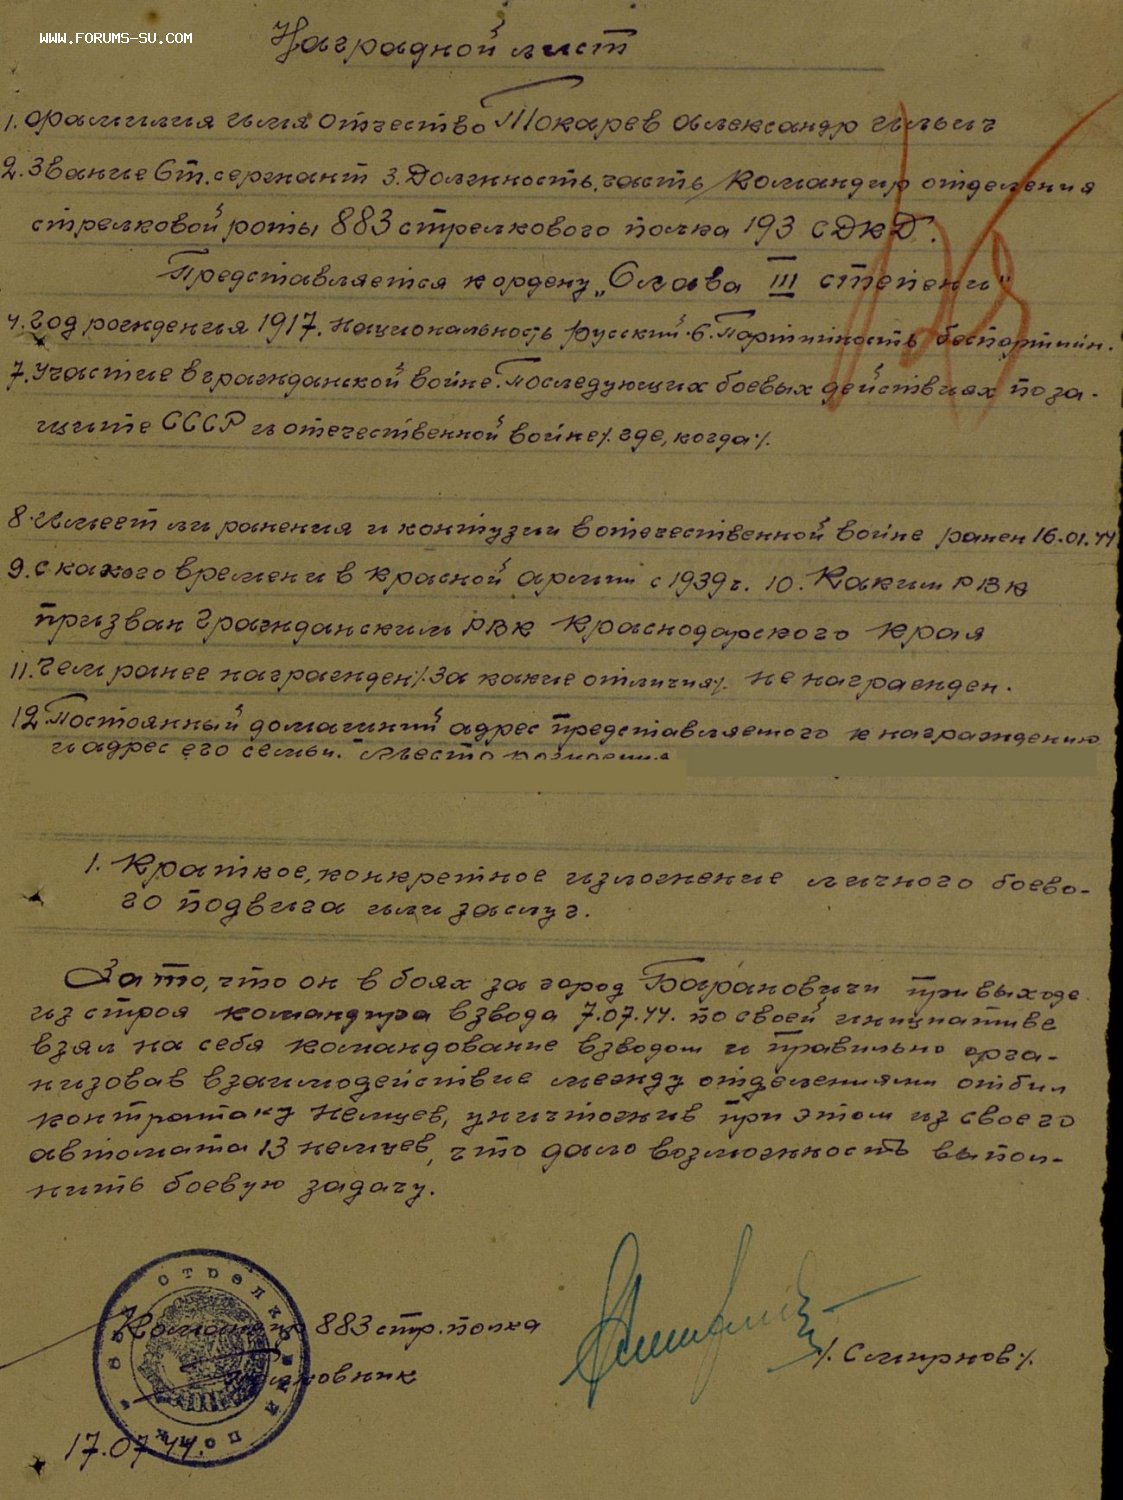 WWW.FORUMS-SU.COM
Наградной лист
1. Фамилия имя отчество Токарев Александр Ильич
2. Звание Ст. сержант 3. Должность, часть командир отделения
стрелковой роты 883 стрелкового полка 193 СДКД.
Представляется к ордену „Слава III степени"
4. Год рождения 1917. Национальность русский. 6. Партийность беспартийн.
7. Участие в гражданской войне. Последующих боевых действиях по за-
щите СССР и отечественной войне /. где, когда ./.
8. Имеет ли ранения и контузии в отечественной войне ранен 16.01.44
9. С какого времени в красной армии с 1939 г. 10. Каким РВК
призван Гражданским РВК Краснодарского края
11. Чем ранее награжден /. за какие отличия ./. не награжден.
12. Постоянный домашний адрес представляемого к награждению
и адрес его семьи. Место рождения
1. Краткое, конкретное изложение личного боево-
го подвига или заслуг.
За то, что он в боях за город Барановичи при выходе
из строя командира взвода 7.07.44. по своей инициативе
взял на себя командование взводом и правильно орга-
низовав взаимодействие между отделениями отбил
контратаку немцев, уничтожив при этом из своего
автомата 13 немцев, что дало возможность выпол-
нить боевую задачу.
Командир 883 стр. полка
/. Смирнов ./.
17.07.44.